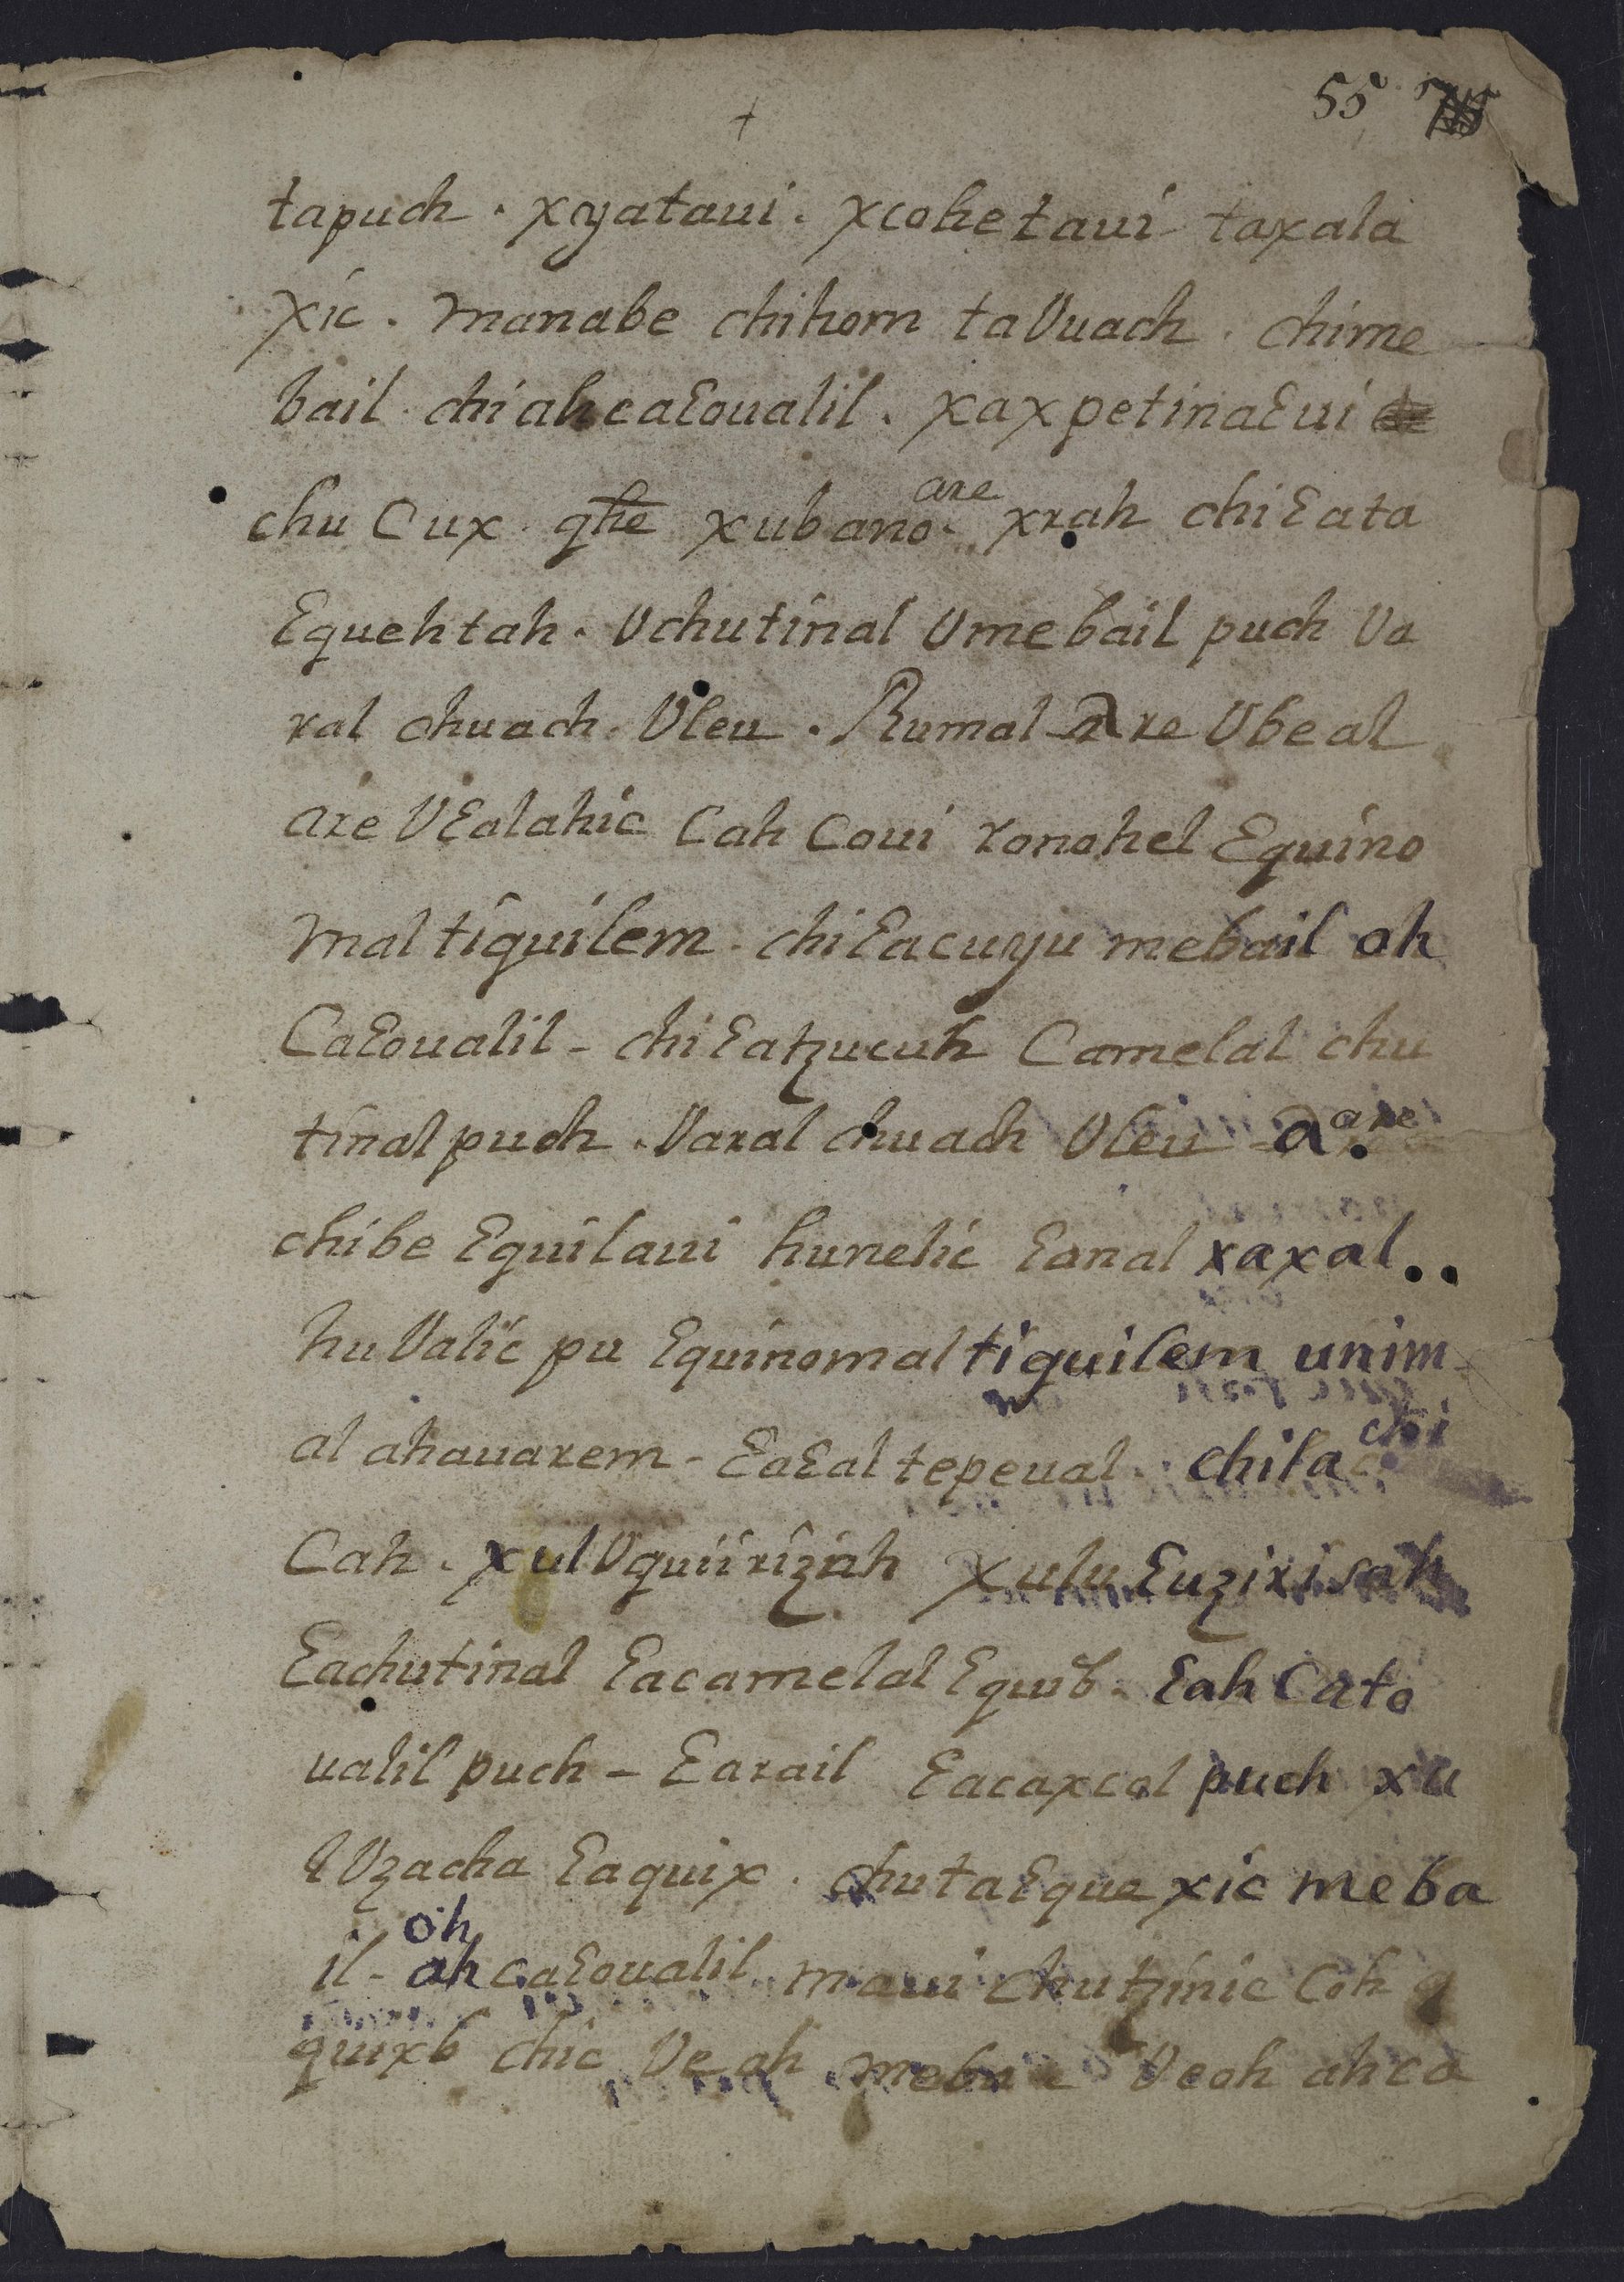 55
+
tapuch . xyataui . xcohetaui taxala
xic . manabe chihom taVuach . chime
bail . chi ahcaɛoualil . xaxpetinaɛui
chu Cux . qhe xubano are xrah chiɛata
ɛquehtah . Vchutinal Vmebail puch Va
ral chuach . Vleu . Rumal are Vbeal
are Vɛalahic Cah Coui ronohel ɛquino
mal tiquilem . chiɛacuyu mebail oh
Caɛoualil - chiɛatzucuh Camelal chu
tinal puch . Varal chuach Vleu - a are
chibe ɛquilaui hunelic ɛanal raxal . .
huValic pu ɛquinomal tiquilem unim
al ahauarem - ɛaɛal tepeual . chila chi
Cah . xul Vquiirizah xulu ɛuzirisah
ɛachutinal ɛacamelal ɛquib . ɛah Cato
ualil puch - ɛarail ɛacaxcol puch xu
l Vzacha ɛaquix . chutaɛquexic meba
il - oh ahcaɛoualil maui chutzinic Coh q
quixb chic Ve oh meba Veoh ahca